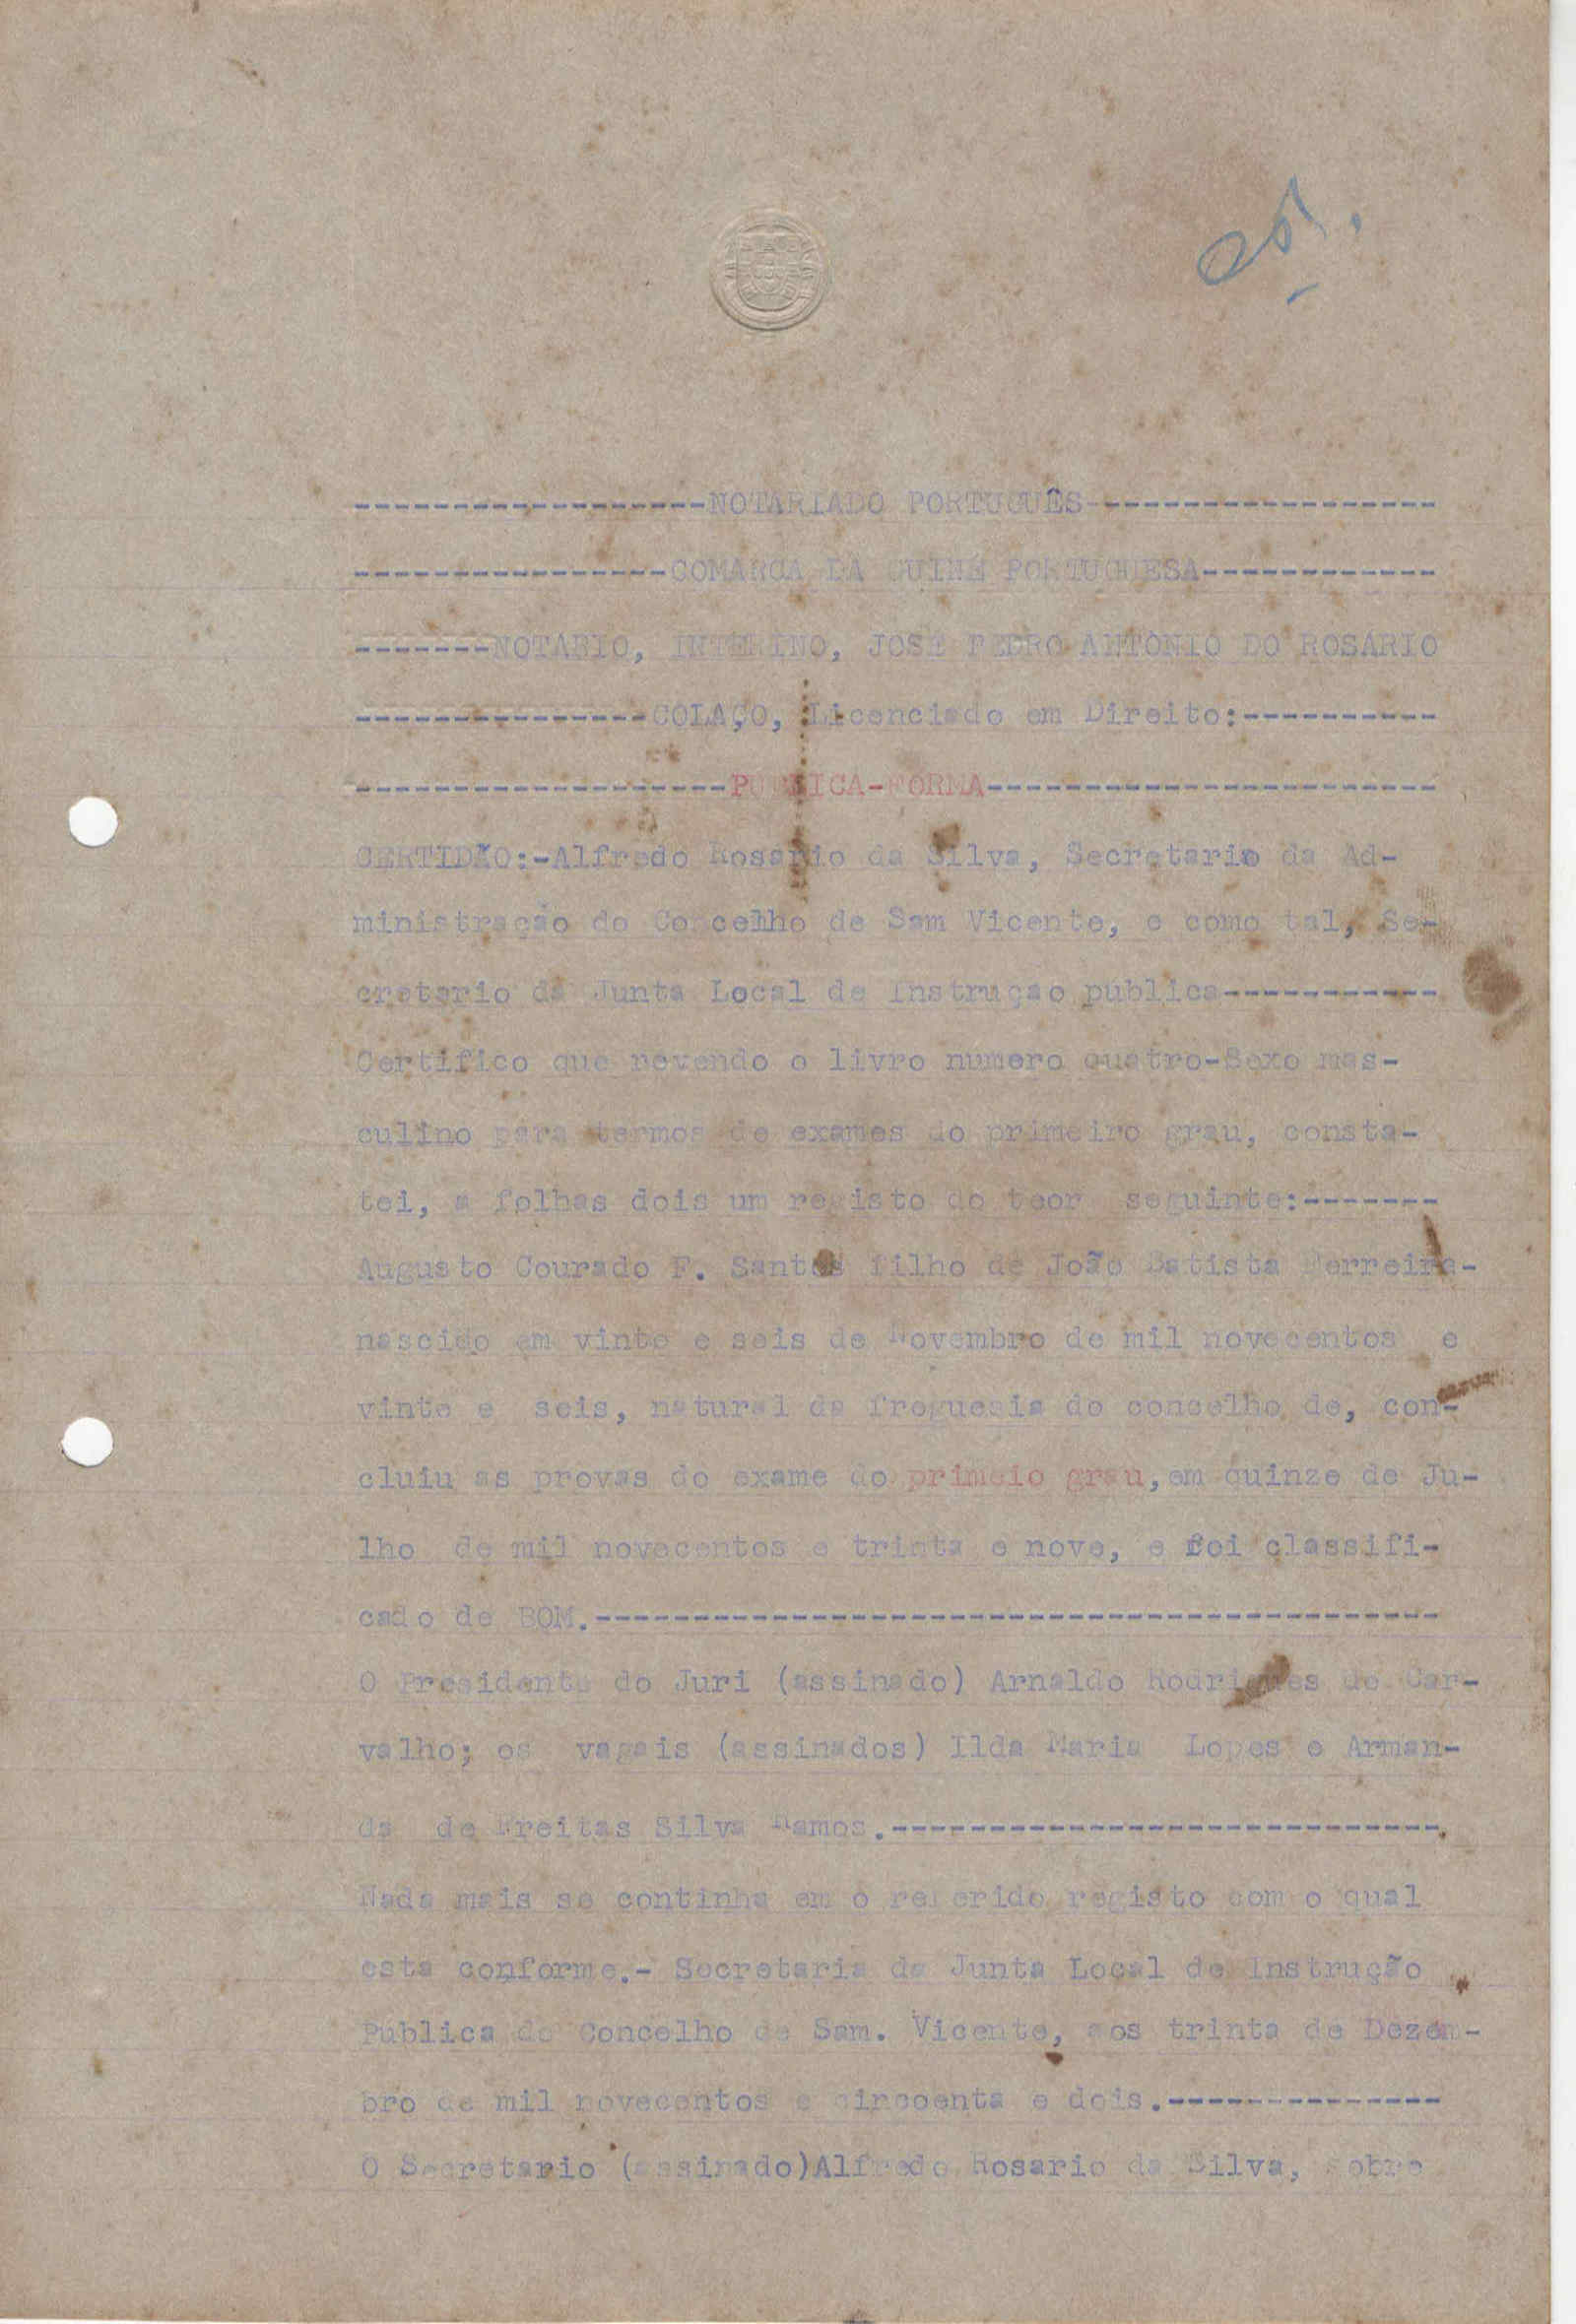 ------------------NOTARIADO PORTUGUÊS------------------
----------------COMARCA DA GUINÉ PORTUGUESA------------
-------NOTÁRIO, INTERINO, JOSÉ PEDRO ANTÓNIO DO ROSÁRIO
---------------COLAÇO, Licenciado em Direito:----------
-------------------PUBLICA-FORMA-----------------------
CERTIDÃO:-Alfredo Rosario da Silva, Secretario da Ad-
ministração do Concelho de Sam Vicente, e como tal, Se-
cretario da Junta Local de Instrução publica-----------
Certifico que revendo o livro numero quatro-Sexo mas-
culino para termos de exames do primeiro grau, consta-
tei, a folhas dois um registo do teor seguinte:-------
Augusto Courado F. Santos filho de João Batista Ferreira-
nascido em vinte e seis de Novembro de mil novecentos e
vinte e seis, natural da freguesia do concelho de, con-
cluiu as provas do exame do primeio grau,em quinze de Ju-
lho de mil novecentos e trinta e nove, e foi classifi-
cado de BOM.-------------------------------------------
O Presidente do Juri (assinado) Arnaldo Rodrigues de Car-
valho; os vagais (assinados) Ilda Maria Lopes e Arman-
da de Freitas Silva Ramos.----------------------------.
Nada mais se continha em o referido registo com o qual
esta conforme.- Secretaria da Junta Local de Instrução
Pública do Concelho de Sam. Vicente, aos trinta de Dezem-
bro de mil novecentos e cincoenta e dois.--------------
O Secretario (assinado)Alfredo Rosario da Silva, sobre